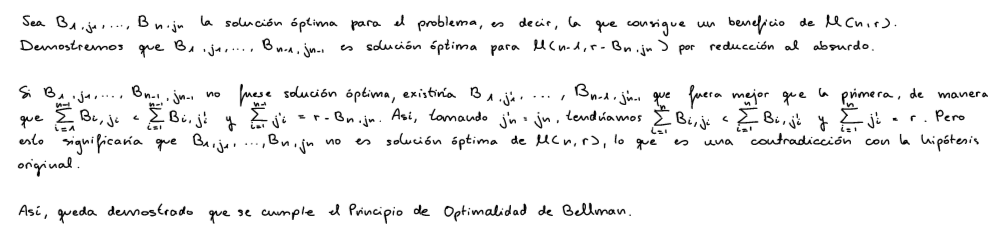 Sea B₁,j₁, ..., Bₙ,jₙ la solución óptima para el problema, es decir, la que consigue un beneficio de M(n,r).
Demostremos que B₁,j₁, ..., Bₙ₋₁,jₙ₋₁ es solución óptima para M(n-1, r - Bₙ,jₙ) por reducción al absurdo.
Si B₁,j₁, ..., Bₙ₋₁,jₙ₋₁ no fuese solución óptima, existiría B₁,j₁', ..., Bₙ₋₁,jₙ₋₁' que fuera mejor que la primera, de manera
que ∑ᵢ₌₁ⁿ⁻¹ Bᵢ,jᵢ < ∑ᵢ₌₁ⁿ⁻¹ Bᵢ,jᵢ' y ∑ᵢ₌₁ⁿ⁻¹ jᵢ' = r - Bₙ,jₙ. Así, tomando jₙ' = jₙ, tendríamos ∑ᵢ₌₁ⁿ Bᵢ,jᵢ < ∑ᵢ₌₁ⁿ Bᵢ,jᵢ' y ∑ᵢ₌₁ⁿ jᵢ' = r. Pero
esto significaría que B₁,j₁, ..., Bₙ,jₙ no es solución óptima de M(n,r), lo que es una contradicción con la hipótesis
original.
Así, queda demostrado que se cumple el Principio de Optimalidad de Bellman.